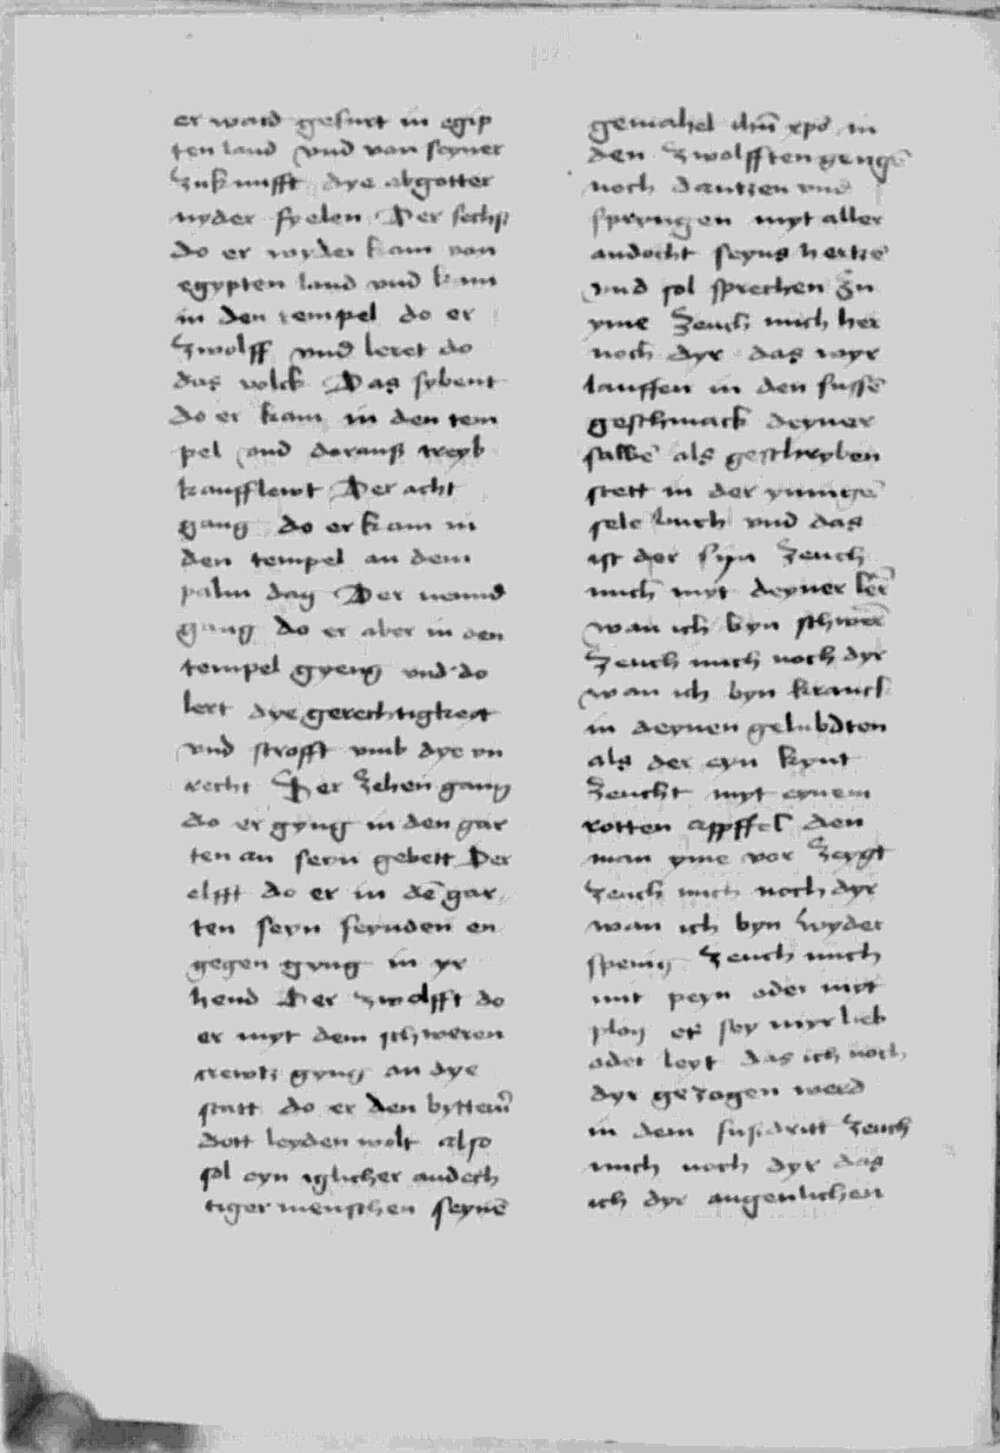 er ward gefurt in egip
ten land vnd von seyner
zukunfft dye abgotter
nyder fyelen Der sechst
do er wyder kam von
egypten land vnd kam
in den tempel do er
zwolff vnd leret do
das volck Das sybent
do er kam in den tem
pel vnd dorauß treyb
kaufflewt Der acht
gang do er kam in
den tempel an dem
palm dag Der neund
gang do er aber in den
tempel gyeng vnd do
lert dye gerechtigkeat
vnd strofft vmb dye vn
recht Der zehen gang
do er gyng in den gar
ten an seyn gebett Der
elfft do er in dē gar
ten seyn feynden en
gegen gyng in yr
hend Der zwolfft do
er myt dem schweren
crewtz gyng an dye
statt do er den bittern̄
dott leyden wolt also
sol eyn iglicher andech
tiger menschen seynē
gemahel ihū xpō in
den zwolfften gengē
noch dantzen vnd
spryngen myt aller
andocht seyns hertzē
vnd sol sprechen zu
yme zeuch mich her
noch dyr das wyr
lauffen in den sussē
geschmack deyner
salbē als geschryben
stett in der ynnigē
sele buch vnd das
ist der syn zeuch
mich myt deyner lēr
wan ich byn schwēr
zeuch mich noch dyr
wan ich byn kranck
in deynen gelubdten
als der eyn kynt
zeucht myt eynem
rotten appffel den
man yme vor zeygt
zeuch mich noch dyr
wan ich byn wyder
spenig zeuch mich
mit peyn oder myt
plog eß sey myr lieb
oder leyt das ich noch
dyr gezogen werd
in dem fußdritt zeuch
mich noch dyr das
ich dyr augenlichen